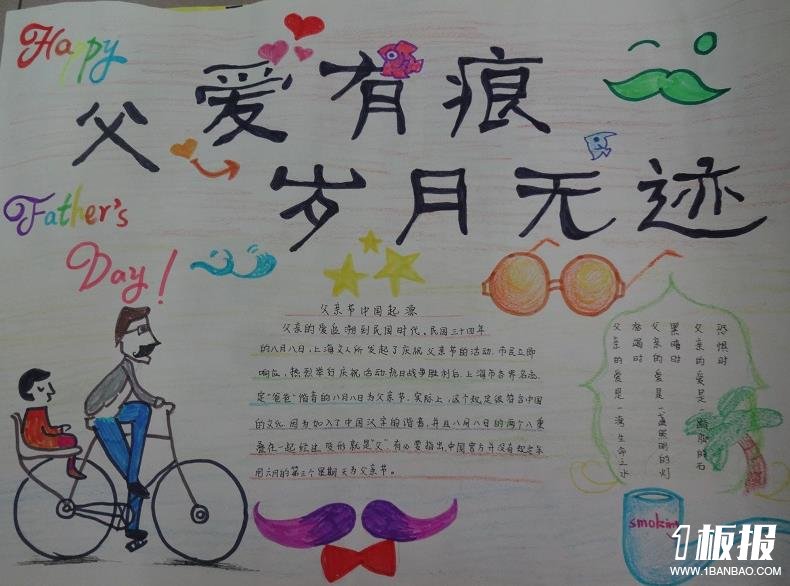 Happy
父爱有痕
岁月无迹
Father's
Day!
父亲节中国起源
父亲的爱追溯到民国时代。民国三十四年
的八月八日,上海文人所发起了庆祝父亲节的活动.市民立即
响应,热烈举行庆祝活动.抗日战争胜利后.上海市各界名
定"爸爸"谐音的八月八日为父亲节.实际上,这个规定很符合中国
的文化,因为加入了中国父亲的谐音,并且八月八日的两个八重
叠在一起经过变形就是"父".有必要指出,中国官方并没有规定采
用六月的第三个星期天为父亲节。
恐惧时
父亲的爱是一踏脚石
黑暗时
父亲的爱是一盏照明的灯
枯竭时
父亲的爱是一湾生命之水
smoking
1板报
WWW.1BANBAO.COM